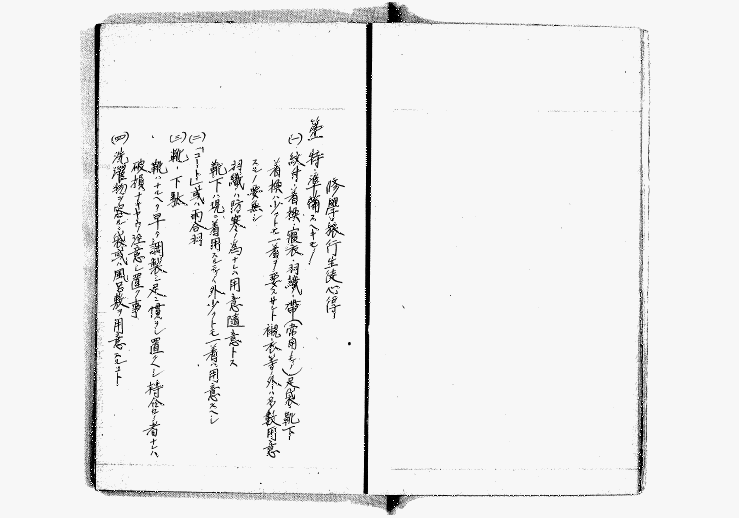 修學旅行生徒心得
第一 特ニ準備スヘキモノ
(一) 紋付ノ着換 寝衣 羽織 帶(常用ノモノ) 足袋 靴下
着換ハ少クトモ一着ヲ要スサレト襯衣等ノ外ハ多數用意
スルノ要無シ
羽織ハ防寒ノ為ナレハ用意隨意トス
靴下ハ現ニ着用スルモノノ外少クトモ一着ハ用意スヘシ
(二)「コート」或ハ雨合羽
(三) 靴、下駄
靴ハナルヘク早ク調製シ足ニ慣ラシ置クヘシ持合ノ者ナレハ
破損ナキヤウ注意シ置ク事
(四) 洗濯物ヲ容ルル袋或ハ風呂敷ヲ用意スルコト